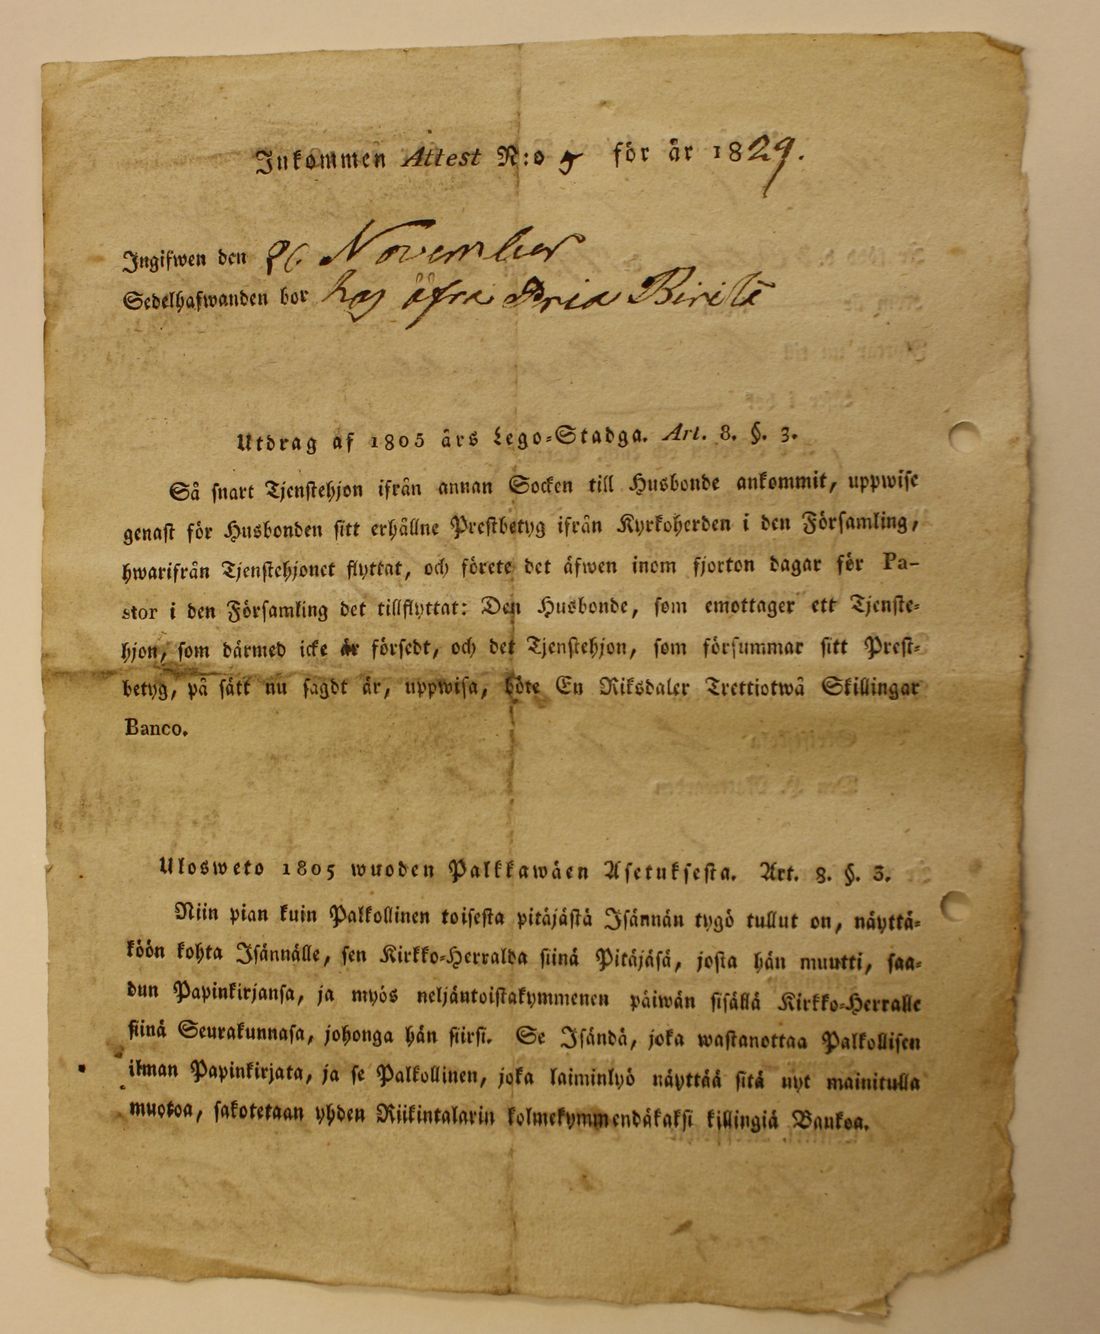 Inkommen Attest N:o 5 för år 1829.
Ingifwen den 26 November
Sedelhafwanden bor hos öfra
Utdrag af 1805 års Lego-Stadga. Art. 8. §. 3.
Så snart Tjenstehjon ifrån annan Socken till Husbonde ankommit, uppwise
genast för Husbonden sitt erhållne Prestbetyg ifrån Kyrkoherden i den Församling,
hwarifrån Tjenstehjonet flyttat, och förete det äfwen inom fjorton dagar för Pa-
stor i den Församling det tillflyttat: Den Husbonde, som emottager ett Tjenste-
hjon, som därmed icke är försedt, och det Tjenstehjon, som försummar sitt Prest-
betyg, på sätt nu sagdt är, uppwisa, böte En Riksdaler Trettiotwå Skillingar
Banco.
Ulosweto 1805 wuoden Palkkawäen Asetuksesta. Art. 8. §. 3.
Niin pian kuin Palkollinen toisesta pitäjästä Isännän tygö tullut on, näyttä-
köön kohta Isännälle, sen Kirkko-Herralda siinä Pitäjäsä, josta hän muutti, saa-
dun Papinkirjansa, ja myös neljäntoistakymmenen päiwän sisällä Kirkko-Herralle
siinä Seurakunnasa, johonga hän siirsi. Se Isändä, joka wastanottaa Palkollisen
ilman Papinkirjata, ja se Palkollinen, joka laiminlyö näyttää sitä nyt mainitulla
muotoa, sakotetaan yhden Riikintalarin kolmekymmendäkaksi killingiä Bankoa.